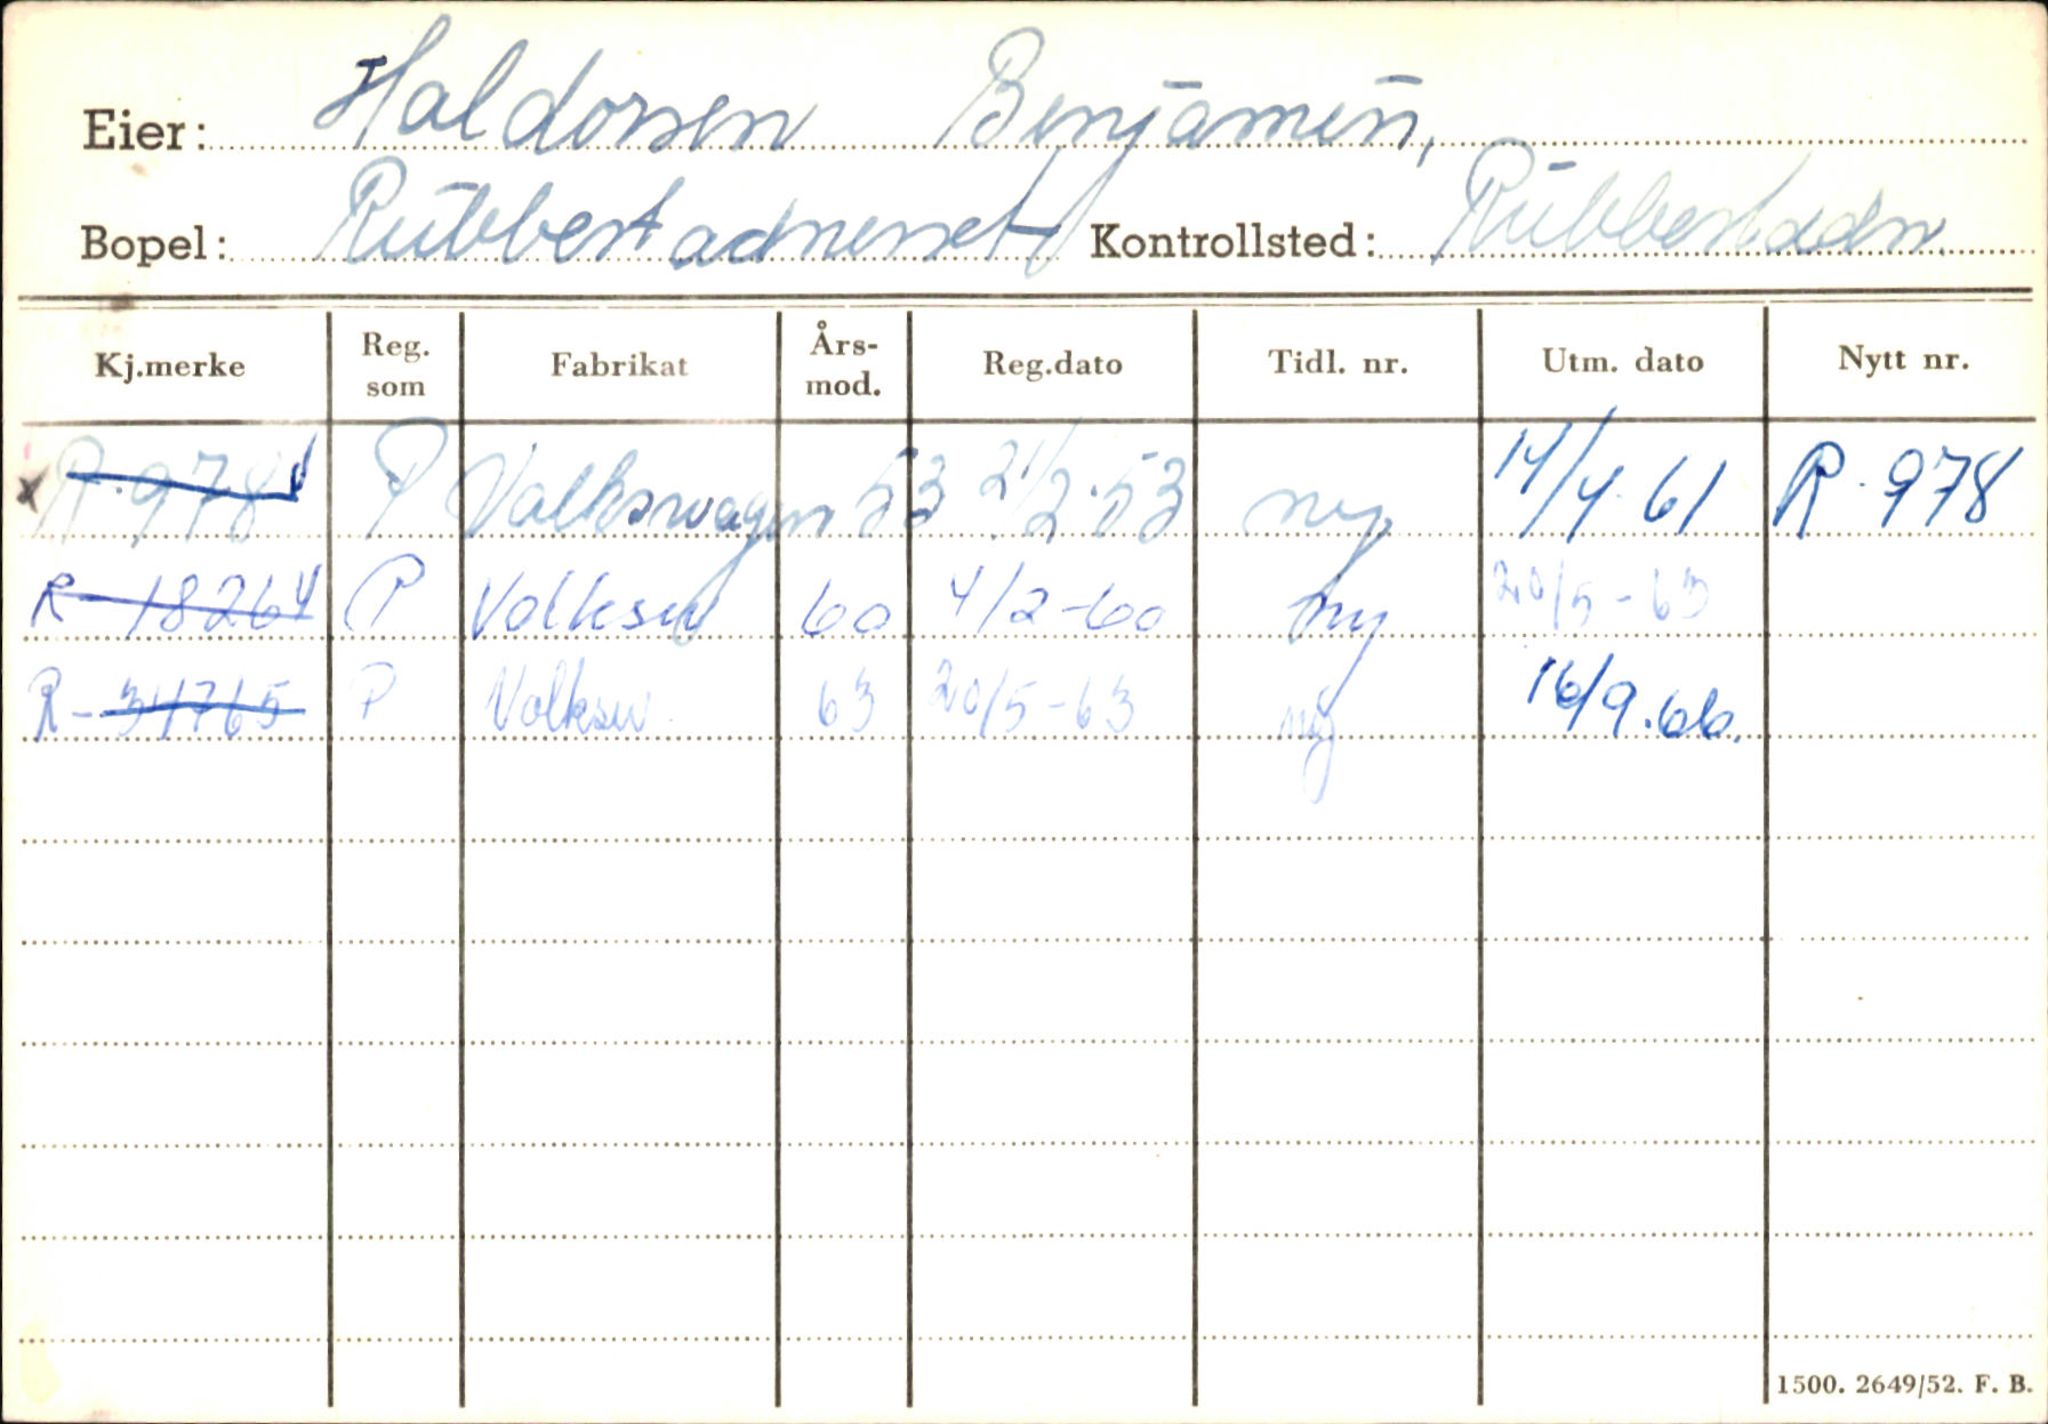 Eier: Haldorsen Benjamin,
Bopel: Rubbestadnesset Kontrollsted: Rubbestadn.
Kj.merke Reg. som Fabrikat Års-mod. Reg.dato Tidl. nr. Utm. dato Nytt nr.
x R-978 P Volkswagen 53 21/2-53 ny 14/4 61 R-978
R-18264 P Volksw 60 4/2-60 ny 20/5-63
R-34765 P Volksw 63 20/5-63 ny 16/9.66.
1500. 2649/52. F. B.